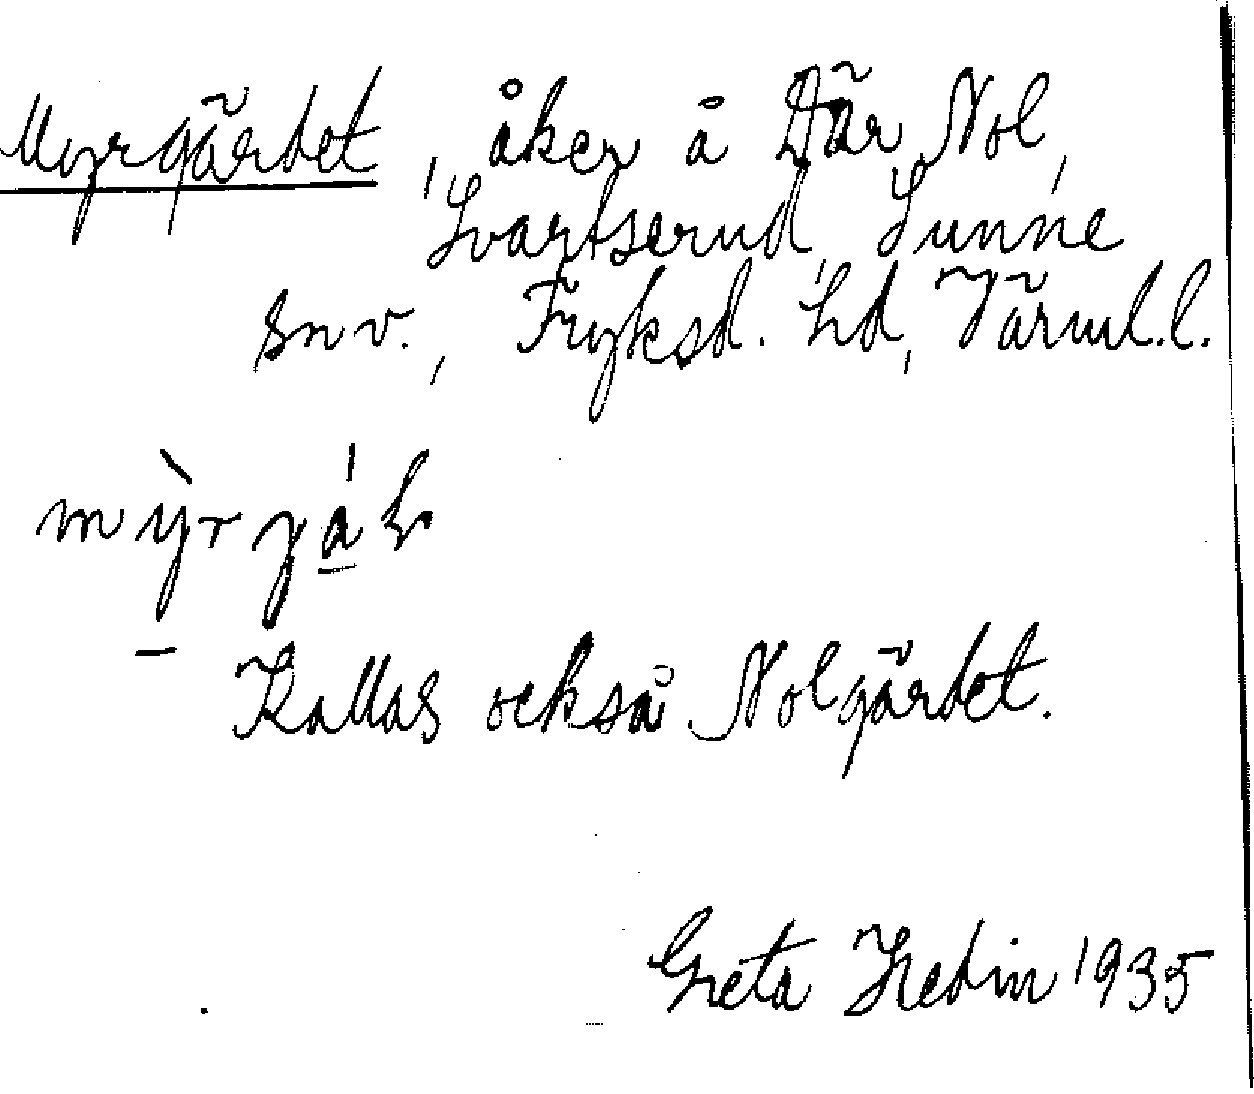 Myrgärdet, åker å Där Nol,
Svartserud, Sunne
snv., Fryksd. hd, Värml.l.
Kallas också Nolgärdet.
Greta Hedin 1935